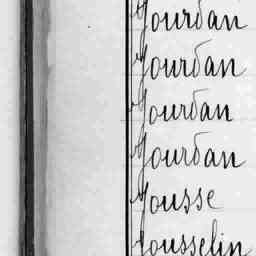 Jourdan
Jourdan
Jourdan
Jourdan
Jousse
Jousselin